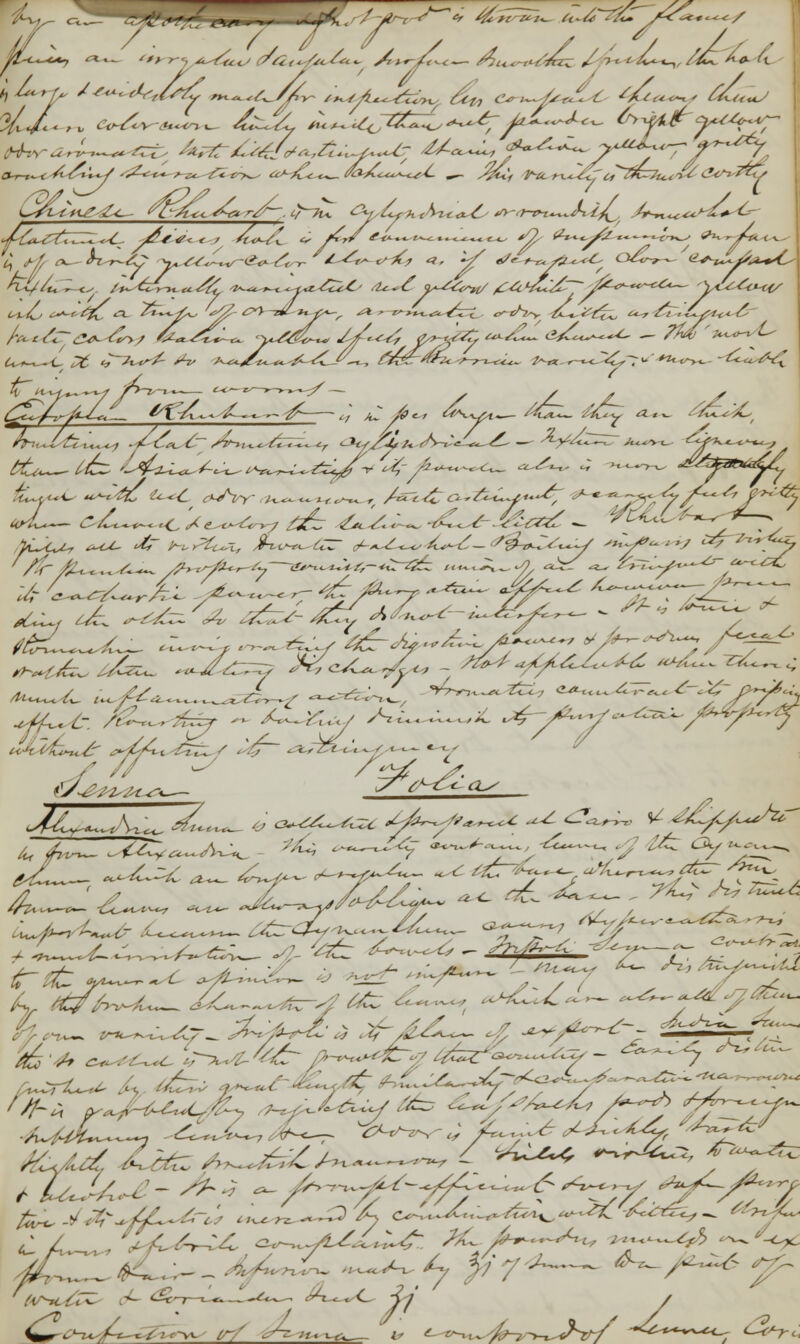 by an apothecary if not good is thrown into the flames
pieces an irregular & angular, surface smoother & fresher, the hole
is large & evidently made for inspection, less compact & heavy than
Chinese color more lively inside than out, powder bright yellow,
odor aromatic, taste bitter & astringent, stains saliva yellow, gritty
crackling sensation when chewed – This variety is the most costly
Chinese Rhubarb, is in cylyndrical or roundish, somewhat
flattened pieces, hole is for convenience of suspension, surface
is of a dirty yellow color & looks as if scraped, close compact
texture, internally variegated red yellow & white, powder yellow
ish with a tinge of orange, aromatic odor, bitter astringent
taste, colors saliva yellow & feels gritty when chewed – The most
used, it is not so valuable as the Russian variety, & more liable
to injury from worms –
European Rhubarb – is in pcs longer than they are thick,
sometimes flat, sometimes cylyndrical – Texture more ligneous
than the Asiatic varieties & its powder also is more
tinged with red, odor nauseous, taste astringent, scarcely feels gritty
when chewed & colors the saliva but little – Rhubarb
yields all its virtues to water & alcohol – Boiling impairs its virtues
Its peculiar property consists in the union of an astringent with
its cathartic power, the purgative effect however prece
ding the other so that they do not interfere – It is tonic &
stomachic invigorating the digestive powers & produces fecal
rather than watery discharges – Not applicable when there is
much inflammatory action, Aromatics counteract its griping
effect. Roasting or boiling diminish its purgative property
without affecting its astringency
Senna – Folia
Alexandria Senna is collected & prepared at Cairo & shipped to
us from Alexandria – This variety contains leaves of the Cynan
chum, which are longer & regular at the base, whereas the true
Senna leaves are always oblique at the base – This distinct
important because the Cynanchum causes Hypercatharsis
& much irritation of the bowels – Tripoli Senna contrary
to the general opinion is not impure – May be distinguished
by the broken character of the leaves, which are also all of them
of one variety – Tripoli is its place of export – India Senna
tho' so called is not the growth of that country – Easily distin
guished by their great length, similarity & comparative narrowness
It is garbled by rejecting the leafstalks pods & foreign
substances leaves &c, Odor is faint & sickly, taste
slightly bitter sweetish & nauseous – Yields virtues to water
& alcohol – It is a prompt efficient & very safe purg
tive & its effects is increased by combination with bitters – Useful
in fevers & febrile complaints. The powder moulds on ex
posure to air – Infusion made by ℥j of Senna to a pint of
water & Coriander Seed ʒj
Confection of Senna is composed of Senna, Cori